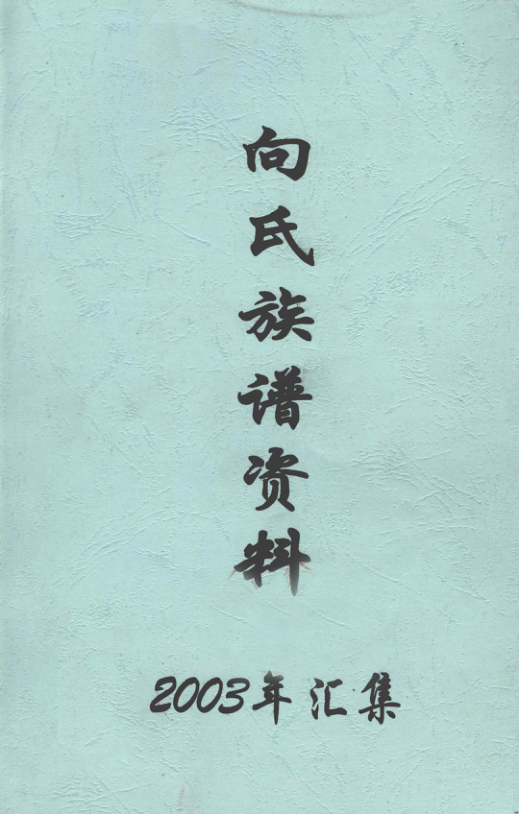 向氏族谱资料
2003年汇集